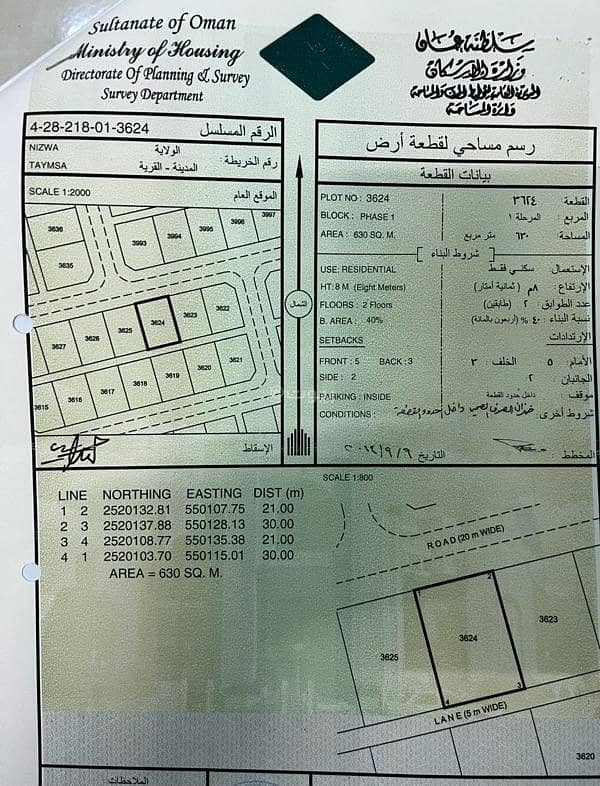 Sultanate of Oman
Ministry of Housing
Directorate Of Planning & Survey
Survey Department
سلطنة عمان
وزارة الإسكان
4-28-218-01-3624
الرقم المسلسل
NIZWA
الولاية
TAYMSA
المدينة - القرية
رقم الخريطة
SCALE 1:2000
الموقع العام
3997
3996
3995
3994
3993
3636
3635
3622
3623
3624
3625
3626
3627
3621
3620
3619
3618
3617
3616
3615
الإسقاط
الشمال
رسم مساحي لقطعة أرض
بيانات القطعة
PLOT NO : 3624
القطعة ٣٦٢٤
BLOCK : PHASE 1
المربع المرحلة ١
AREA : 630 SQ. M.
المساحة ٦٣٠ متر مربع
شروط البناء
USE: RESIDENTIAL
الإستعمال سكني فقط
HT: 8 M (Eight Meters)
الإرتفاع ٨م (ثمانية أمتار)
FLOORS : 2 Floors
عدد الطوابق ٢ (طابقين)
B. AREA : 40%
نسبة البناء ٤٠% (أربعون بالمائة)
SETBACKS
الإرتدادات
FRONT : 5 BACK : 3
الأمام ٥ الخلف ٣
SIDE : 2
الجانبان ٢
PARKING : INSIDE
موقف داخل حدود القطعة
CONDITIONS :
شروط أخرى
المخطط
التاريخ ٢٠١٢/٩/٦
SCALE 1:800
LINE NORTHING EASTING DIST (m)
1 2 2520132.81 550107.75 21.00
2 3 2520137.88 550128.13 30.00
3 4 2520108.77 550135.38 21.00
4 1 2520103.70 550115.01 30.00
AREA = 630 SQ. M.
ROAD (20 m WIDE)
1
2
3623
3624
3625
3
4
LANE (5 m WIDE)
3620
الملاحظات